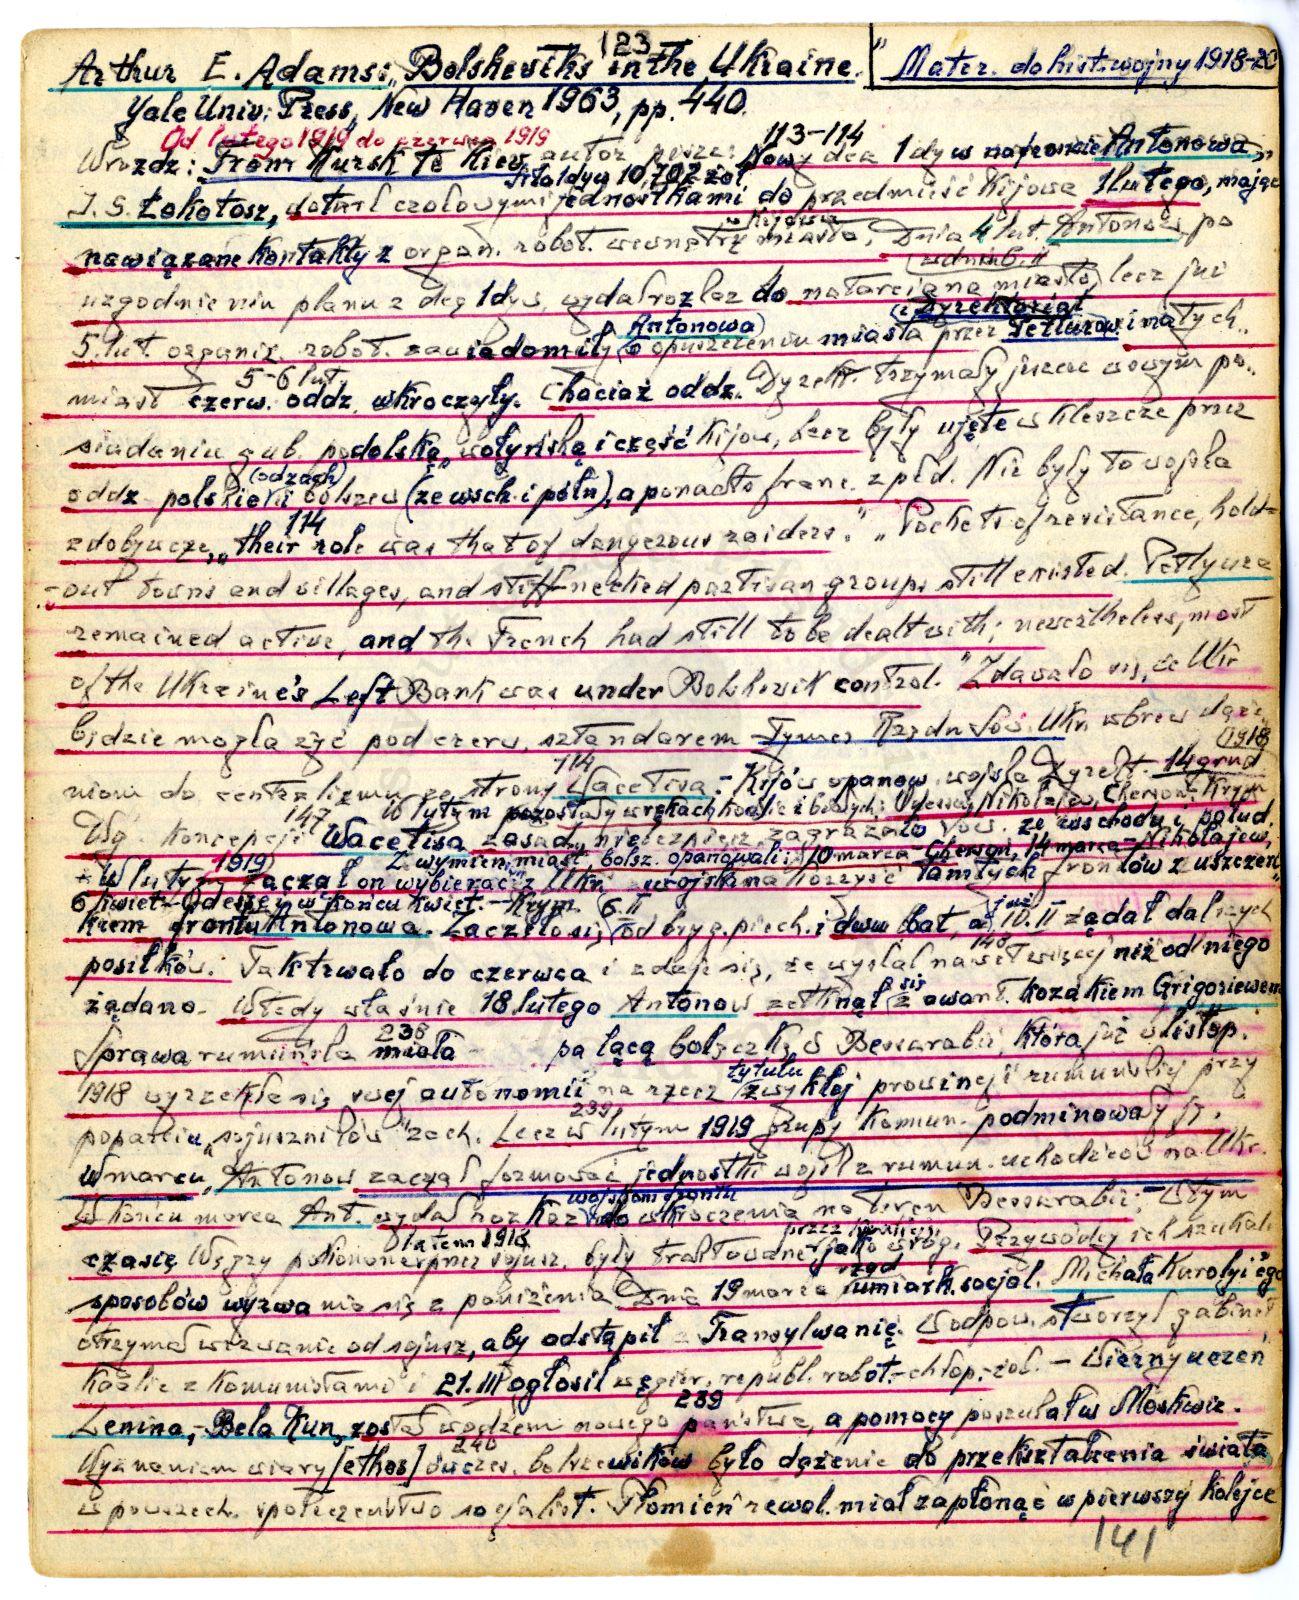 123
Arthur E. Adams: „Bolsheviks in the Ukraine.
"Mater. do hist. wojny 1918-20
Yale Univ. Press, New Haven 1963, pp. 440.
Od lutego 1919 do czerwca 1919
113-114
W rozdz: From Kursk to Kiev autor pisze: Nowy dca 1 dyw na froncie Antonowa,
siła 1 dyw 10,707 żoł
I. S. Łokotosz, dotarł czołowymi jednostkami do przedmieść Kijowa 1 lutego, mając
w Kijowie
nawiązane kontakty z organ. robot. wewnątrz miasta. Dnia 4 lut. Antonow po
w dniu 6.II
uzgodnieniu planu z dcą 1 dyw. wydał rozkaz do natarcia na miasto, lecz już
Antonowa
(i Dyrektoriat
5. lut. organiz. robot. zawiadomiły o opuszczeniu miasta przez Petlurow. i natych-
5-6 lut.
miast czerw. oddz. wkroczyły. Chociaż oddz. Dyrekt. trzymały jeszcze w swym po-
siadaniu gub. podolską, wołyńską i część Kijow, lecz były ujęte w kleszcze przez
(od zach)
oddz. polskie i bolszew (ze wsch. i półn), a ponadto franc. z płd. Nie były to wojska
114
zdobywcze, „their role was that of dangerous raiders." „Pockets of resistance, hold-
-out towns and villages, and stiff-necked partisan groups still existed. Petlyura
remained active, and the French had still to be dealt with; nevertheless, most
of the Ukraine's Left Bank was under Bolshevik control." Zdawało się, że Ukr
będzie mogła żyć pod czerw. sztandarem Tymcz Rządu Sow. Ukr wbrew dąże-
114
1918
niom do centralizmu ze strony Wacetisa.- Kijów opanow. wojska Dyrekt. 14 grud
147 W lutym pozostały w rękach koalicji i białych: Odessa, Nikołajew, Cherson i Krym
Wg. koncepcji Wacetisa zasadn. niebezpiecz. zagrażało Sow. ze wschodu i połud.
1919 Z wymien. miast, bolsz. opanowali: 10 marca - Cherson, 14 marca - Nikołajew,
W lutym zaczął on wybierać z Ukr wojska na korzyść tamtych frontów z uszczerb-
6 kwiet - Odessę i w końcu kwiet. - Krym 6.II już
kiem frontu Antonowa. Zaczęło się od bryg. piech. i dwu bat, a 10.II żądał dalszych
148
posiłków. Tak trwało do czerwca i zdaje się, że wysłał nawet więcej niż od niego
się
żądano. Wtedy właśnie 18 lutego Antonow zetknął z awant. kozakiem Grigoriewem
238
Sprawa rumuńska miała palącą bolączkę w Bessarabii, która już w listop.
tytułu
1918 wyrzekła się swej autonomii na rzecz zwykłej prowincji rumuńskiej przy
239
poparciu „sojuszników" zach. Lecz w lutym 1919 grupy komun. podminowały ją.
W marcu, Antonow zaczął formować jednostki wojsk z rumun. uchodźców na Ukr.
wojskom frontu
W końcu marca Ant. wydał rozkaz do wkroczenia na teren Bessarabii; - W tym
latem 1918
przez koalicję
czasie Węgry pokonane przez sojusz. były traktowane jako wróg. Przywódcy ich szukali
rząd
sposobów wyrwania się z poniżenia. Dnia 19 marca umiark. socjal. Michała Karolyi'ego
otrzymał wezwanie od sojusz, aby odstąpił Transylwanię. W odpow. stworzył gabinet
koalic z komunistami i 21.III ogłosił węgier. republ. robot.-chłop.-żoł. - Wierny uczeń
239
Lenina,- Bela Kun, został wodzem nowego państwa, a pomocy poszukał w Moskwie.
240
Wyznaniem wiary [ethos] ówczes. bolszewików było dążenie do przekształcenia świata
w powszech. społeczeństwo socjalist. Płomień rewol. miał zapłonąć w pierwszej kolejce
141